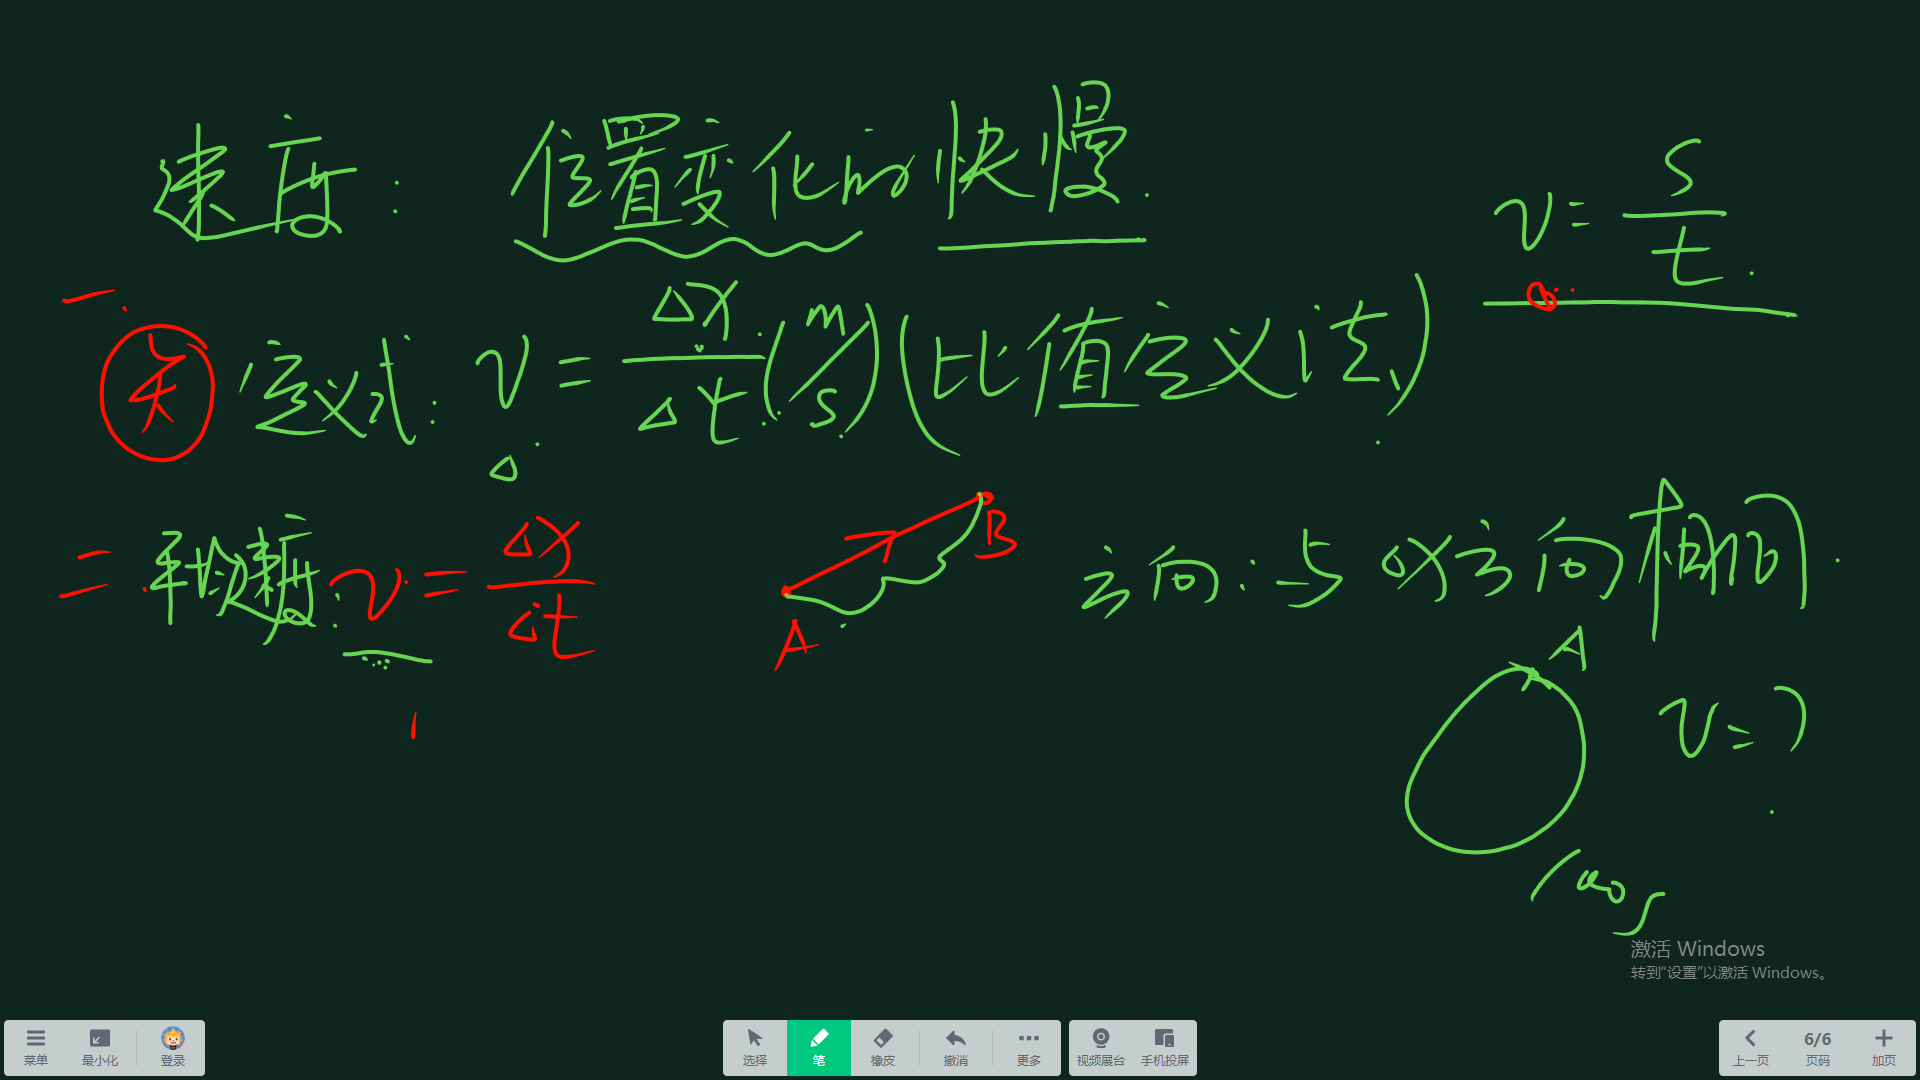 速度: 位置变化的快慢.
v = s/t
一.
矢 定义式: v = Δx/Δt (m/s) (比值定义法)
二. 平均速度: v = Δx/Δt
A
B
方向: 与Δx方向相同.
A
v = ?
100s
激活 Windows
转到“设置”以激活 Windows。
菜单 最小化 登录 选择 笔 橡皮 撤消 更多 视频展台 手机投屏 上一页 6/6 页码 加页